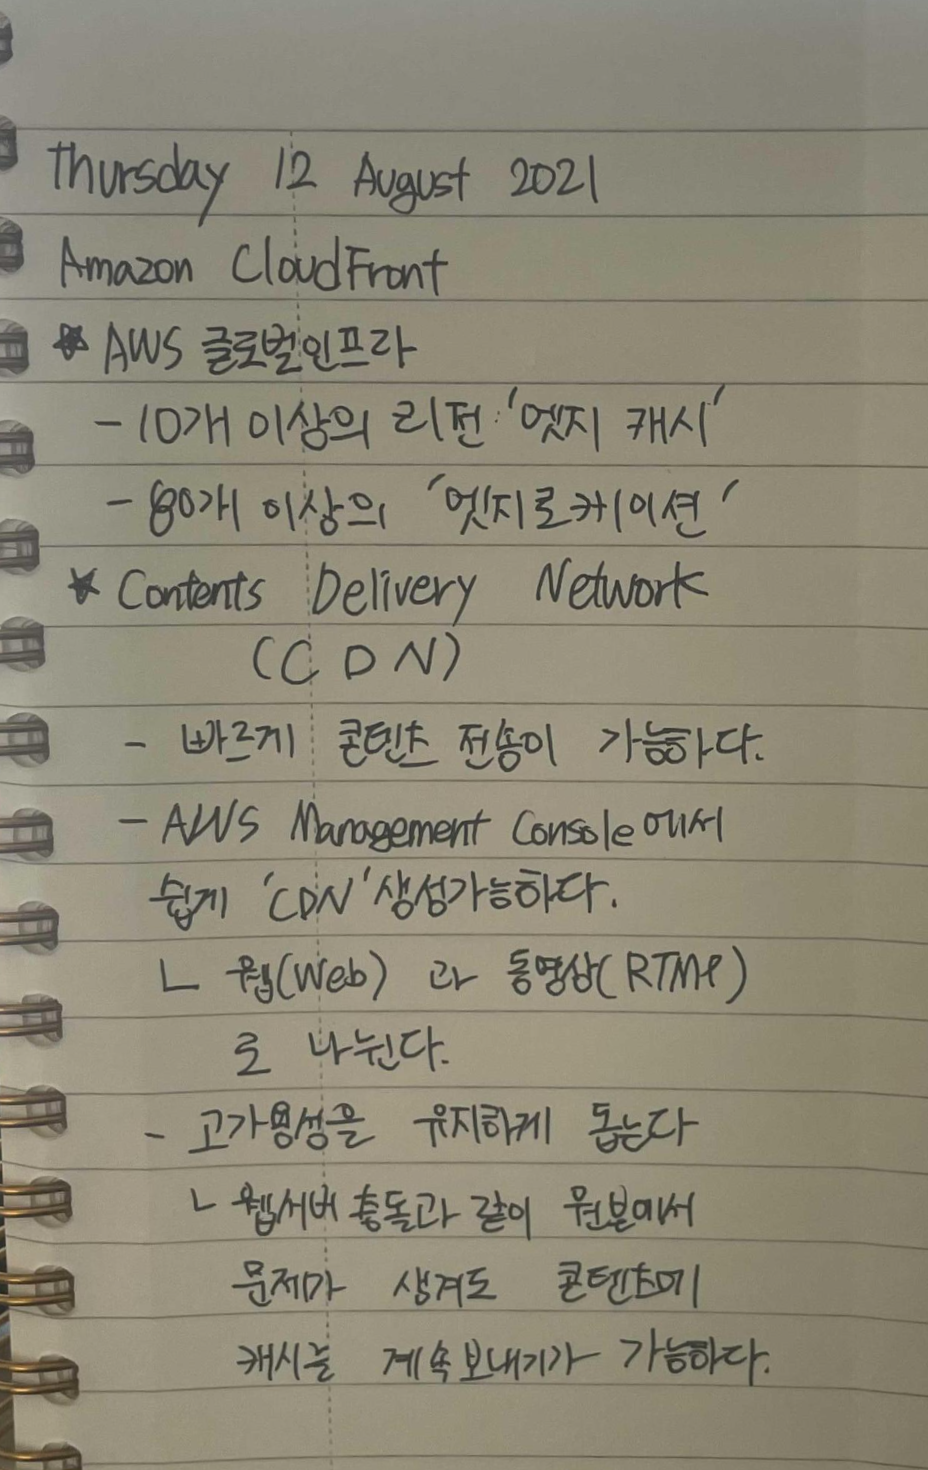 Thursday 12 August 2021
Amazon CloudFront
★ AWS 글로벌인프라
- 10개 이상의 리전 '엣지 캐시'
- 80개 이상의 '엣지로케이션'
★ Contents Delivery Network
(CDN)
- 빠르게 콘텐츠 전송이 가능하다.
- AWS Management Console에서
쉽게 'CDN' 생성가능하다.
ㄴ 웹(Web) 과 동영상(RTMP)
로 나뉜다.
- 고가용성을 유지하게 돕는다
ㄴ 웹서버 충돌과 같이 원본에서
문제가 생겨도 콘텐츠에
캐시를 계속보내기가 가능하다.